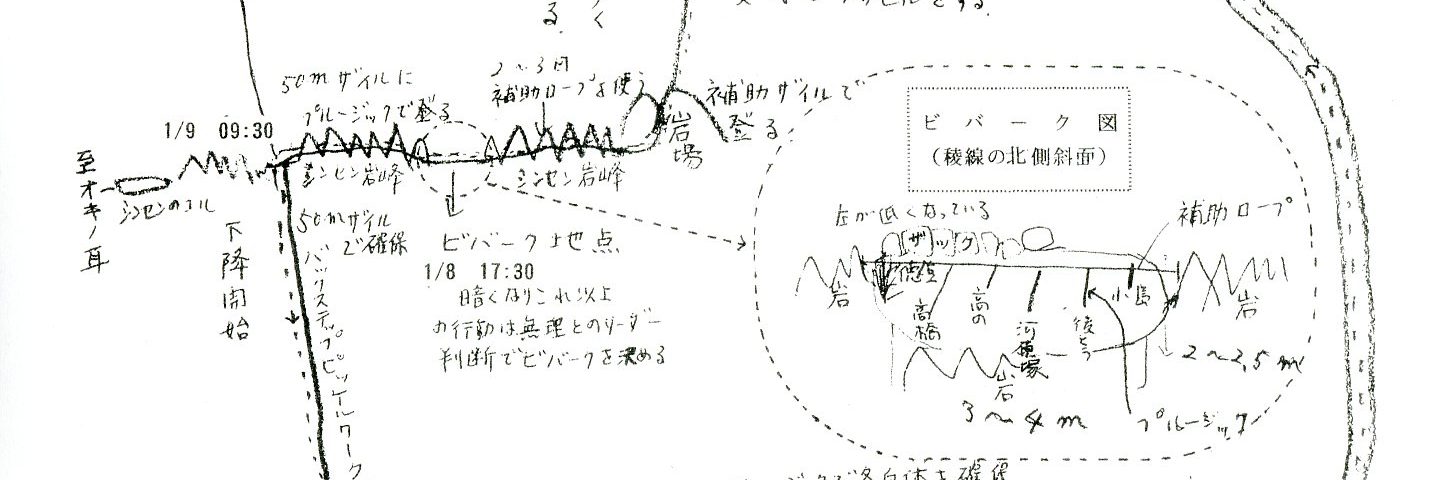 る。 く
50mザイルに
プルージックで登る
2～3回
補助ロープを使う
補助ザイルで
登る
岩場
1/9 09:30
至オキノ耳
シンセンのコル
シンセン岩峰
シンセン岩峰
50mザイル
で確保
下降開始
バックステップピッケルワーク
ビバーク地点
1/8 17:30
暗くなりこれ以上
の行動は無理とのリーダー
判断でビバークを決める
ビバーク図
(稜線の北側斜面)
左が低くなっている
補助ロープ
ザック
岩
高橋
高の
小島
岩
岩
2～2.5m
3～4m
プルージック